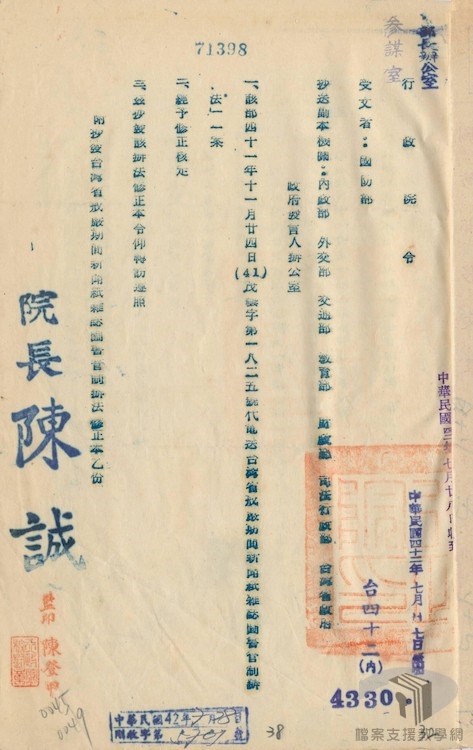 71398
部長辦公室
參謀室
行政院令
受文者：國防部
抄送副本機關：內政部 外交部 交通部 教育部 財政部 司法行政部 台灣省政府
政府發言人辦公室
一、該部四十一年十一月廿四日(41)茂羲字第一八二五號代電送台灣省戒嚴期間新聞紙雜誌圖書管制辦
法」一案
二、經予修正核定
三、玆抄發該辦法修正本令仰轉飭遵照
附抄發台灣省戒嚴期間新聞紙雜誌圖書管制辦法修正本乙份
院長陳誠
監印 陳登甲
中華民國四十二年七月 七日
台四十二(內)
4330.
中華民國 七月廿八日收到
中華民國42年7月28日
字第 號
38
0045
0049
檔案支援教學網